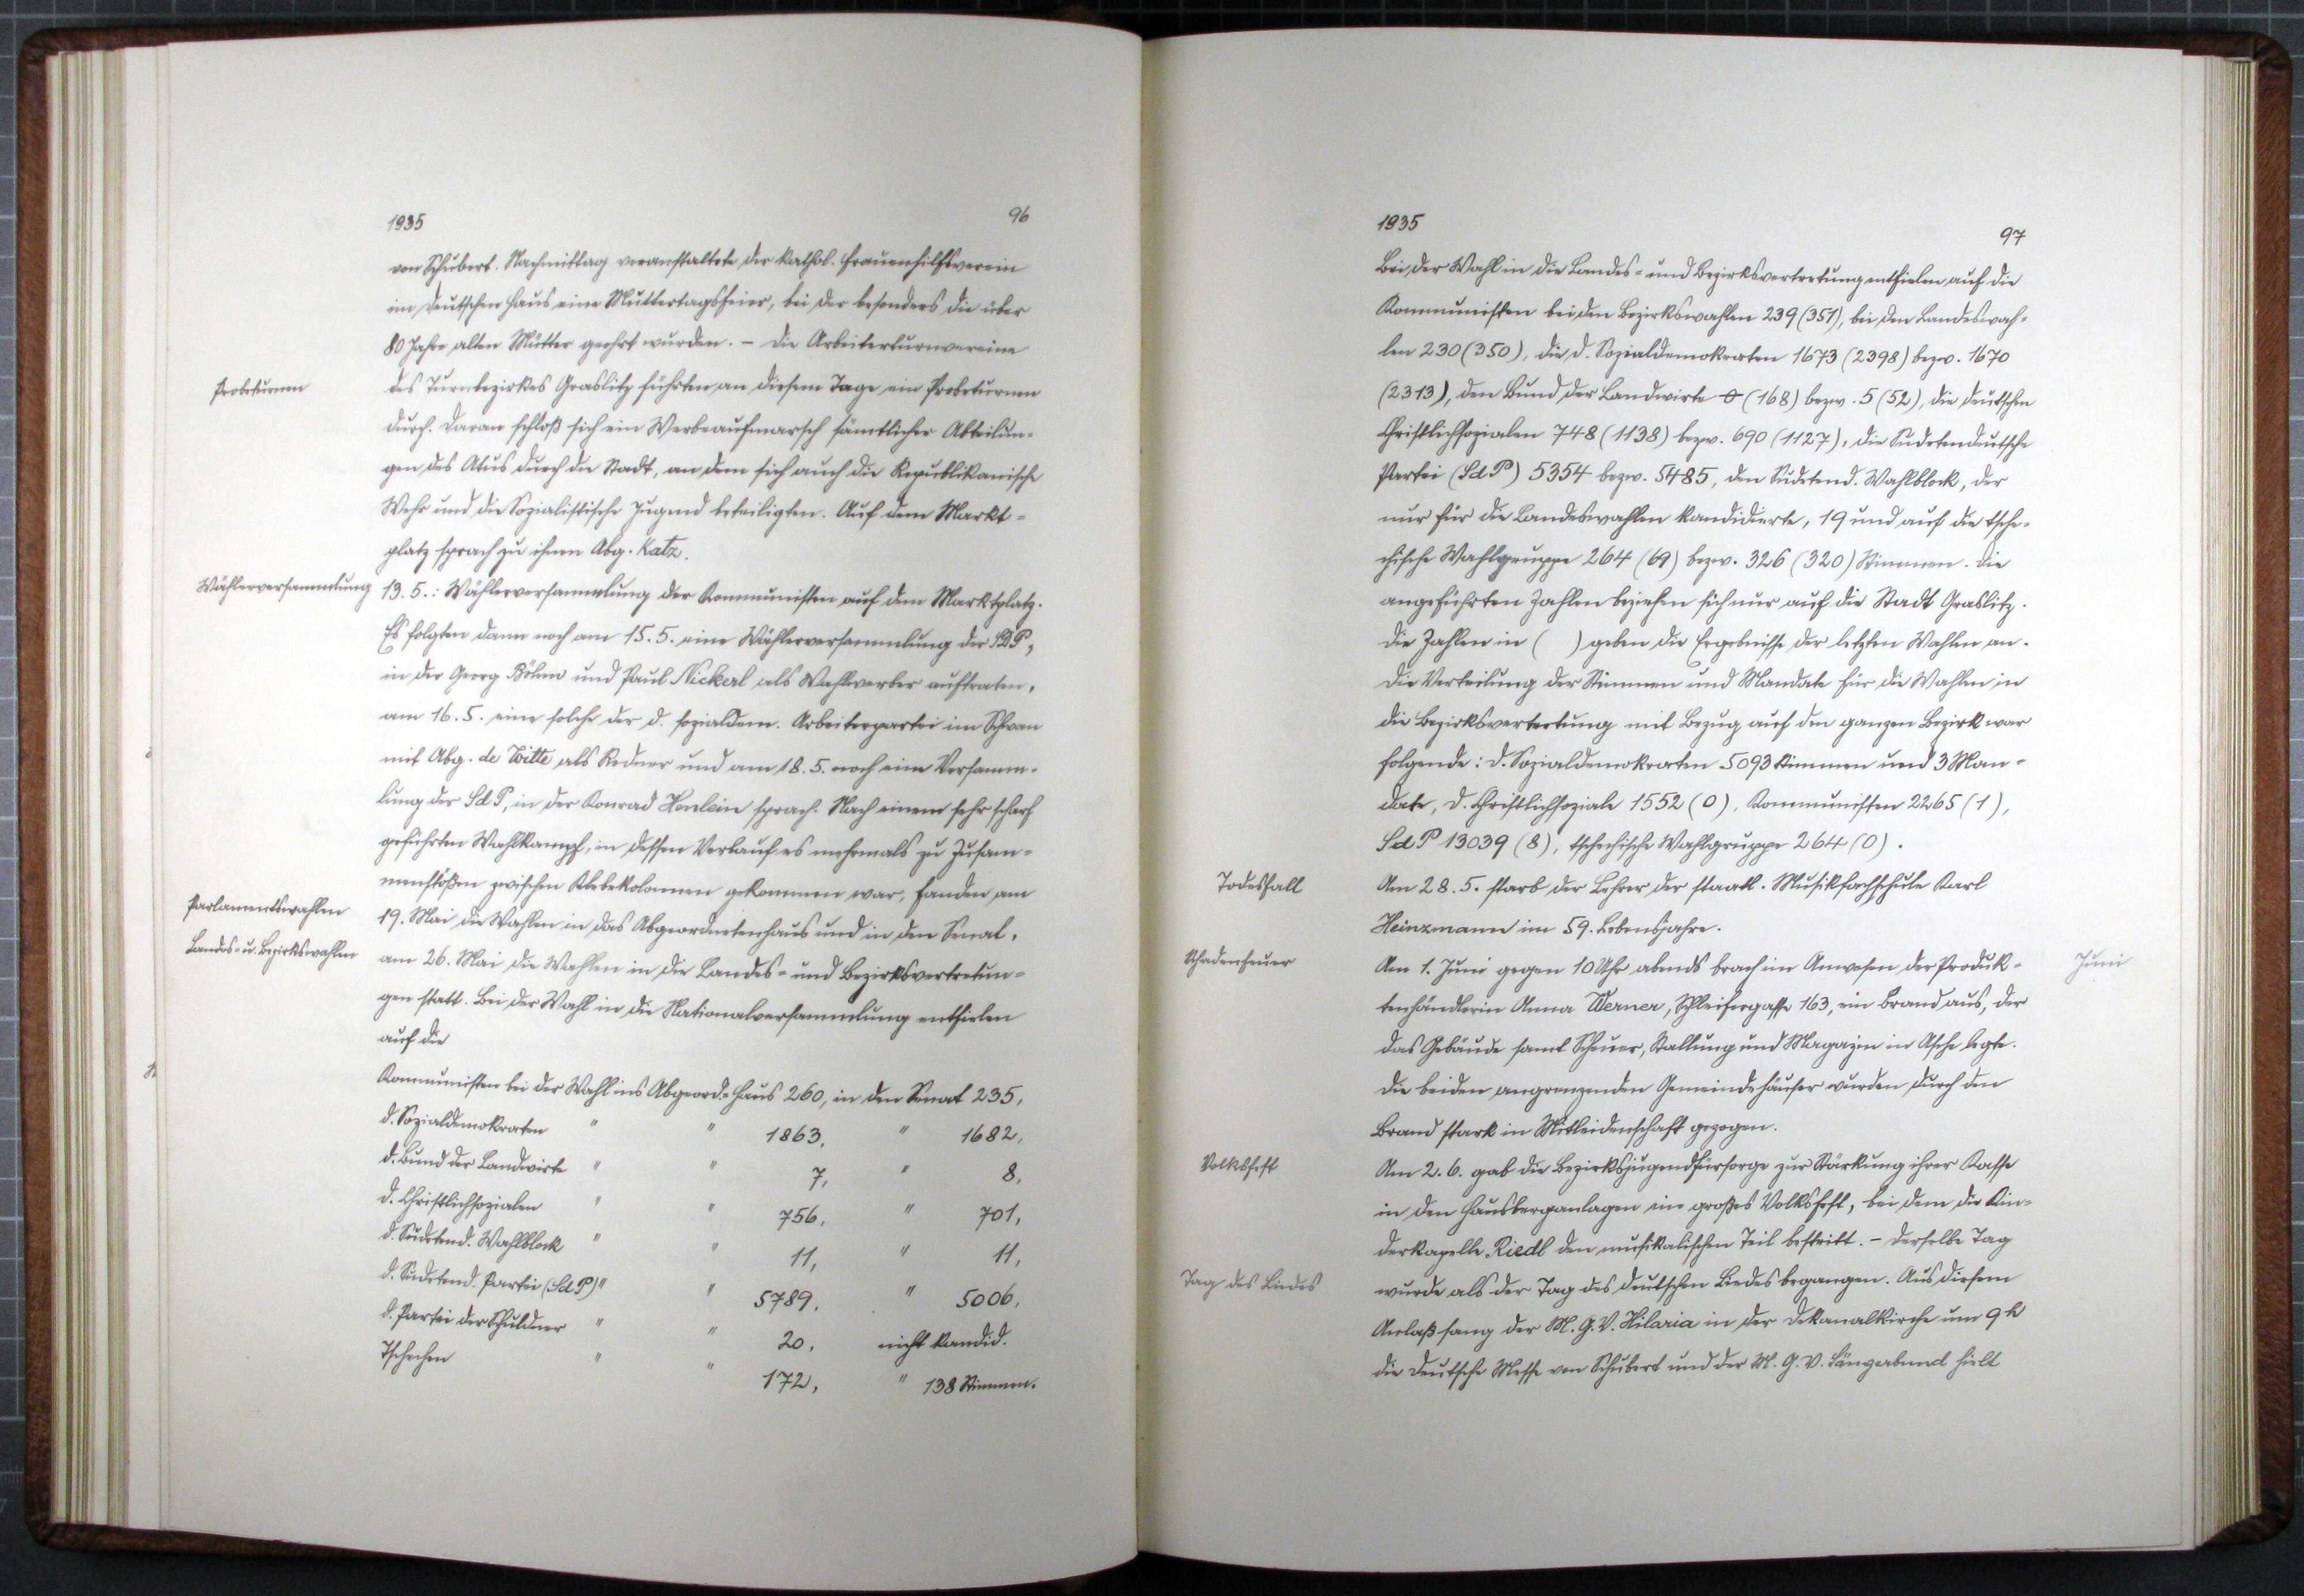 1935
96
von Schubert. Nachmittag veranstaltete der kathol. Frauenhilfsverein
im deutschen Haus eine Muttertagsfeier, bei der besonders die über
80 Jahre alten Mütter geehrt wurden. – Die Arbeiterturnvereine
Probeturnen
des Turnbezirkes Graslitz führten an diesem Tage ein Probeturnen
durch. Daran schloß sich ein Werbeaufmarsch sämtlicher Abteilun-
gen des Atus durch die Stadt, an dem sich auch die Republikanische
Wehr und die Sozialistische Jugend beteiligten. Auf dem Markt-
platz sprach zu ihnen Abg. Katz.
Wählerversammlung
13. 5.: Wählerversammlung der Kommunisten auf dem Marktplatz.
Es folgten dann noch am 15. 5. eine Wählerversammlung der SdP,
in der Georg Böhm und Paul Nickerl als Wahlwerber auftraten,
am 16. 5. eine solche der d. sozialdem. Arbeiterpartei im Schwan
mit Abg. de Witte als Redner und am 18. 5. noch eine Versamm-
lung der SdP, in der Konrad Henlein sprach. Nach einem sehr scharf
geführten Wahlkampf, in dessen Verlauf es mehrmals zu Zusam-
menstößen zwischen Klebekolonnen gekommen war, fanden am
Parlamentswahlen
19. Mai die Wahlen in das Abgeordnetenhaus und in den Senat,
Landes- u. Bezirkswahlen
am 26. Mai die Wahlen in die Landes- und Bezirksvertretun-
gen statt. Bei der Wahl in die Nationalversammlung entfielen
auf die
Kommunisten bei der Wahl ins Abgeord.-Haus 260, in den Senat 235,
d. Sozialdemokraten " " 1863, " 1682,
d. Bund der Landwirte " " 7, " 8,
d. Christlichsozialen " " 756, " 701,
d. Sudetend. Wahlblock " " 11, " 11,
d. Sudetend. Partei (SdP) " " 5789, " 5006,
d. Partei der Schuldner " " 20, nicht kandid.
Tschechen " " 172, " 138 Stimmen.
1935
97
Bei der Wahl in die Landes- und Bezirksvertretung entfielen auf die
Kommunisten bei den Bezirkswahlen 239 (351), bei den Landeswah-
len 230 (350), die d. Sozialdemokraten 1673 (2398) bezw. 1670
(2313), den Bund der Landwirte 0 (168) bezw. 5 (52), die deutschen
Christlichsozialen 748 (1138) bezw. 690 (1127), die Sudetendeutsche
Partei (SdP) 5354 bezw. 5485, den Sudetend. Wahlblock, der
nur für die Landeswahlen kandidierte, 19 und auf die tsche-
chische Wahlgruppe 264 (69) bezw. 326 (320) Stimmen. Die
angeführten Zahlen beziehen sich nur auf die Stadt Graslitz.
Die Zahlen in ( ) geben die Ergebnisse der letzten Wahlen an.
Die Verteilung der Stimmen und Mandate für die Wahlen in
die Bezirksvertretung mit Bezug auf den ganzen Bezirk war
folgende: d. Sozialdemokraten 5093 Stimmen und 3 Man-
date, d. Christlichsoziale 1552 (0), Kommunisten 2265 (1),
SdP 13039 (8), tschechische Wahlgruppe 264 (0).
Todesfall
Am 28. 5. starb der Lehrer der staatl. Musikfachschule Karl
Heinzmann im 59. Lebensjahre.
Schadenfeuer
Am 1. Juni gegen 10 Uhr abends brach im Anwesen der Produk-
Juni
tenhändlerin Anna Werner, Schleifergasse 163, ein Brand aus, der
das Gebäude samt Scheuer, Stallung und Magazin in Asche legte.
Die beiden angrenzenden Gemeindehäuser wurden durch den
Brand stark in Mitleidenschaft gezogen.
Volksfest
Am 2. 6. gab die Bezirksjugendfürsorge zur Stärkung ihrer Kasse
in den Hausberganlagen ein großes Volksfest, bei dem die Kin-
derkapelle Riedl den musikalischen Teil bestritt. – Derselbe Tag
Tag des Liedes
wurde als der Tag des deutschen Liedes begangen. Aus diesem
Anlaß sang der M. G. V. Hilaria in der Dekanalkirche um 9h
die deutsche Messe von Schubert und der M. G. V. Sängerbund hielt